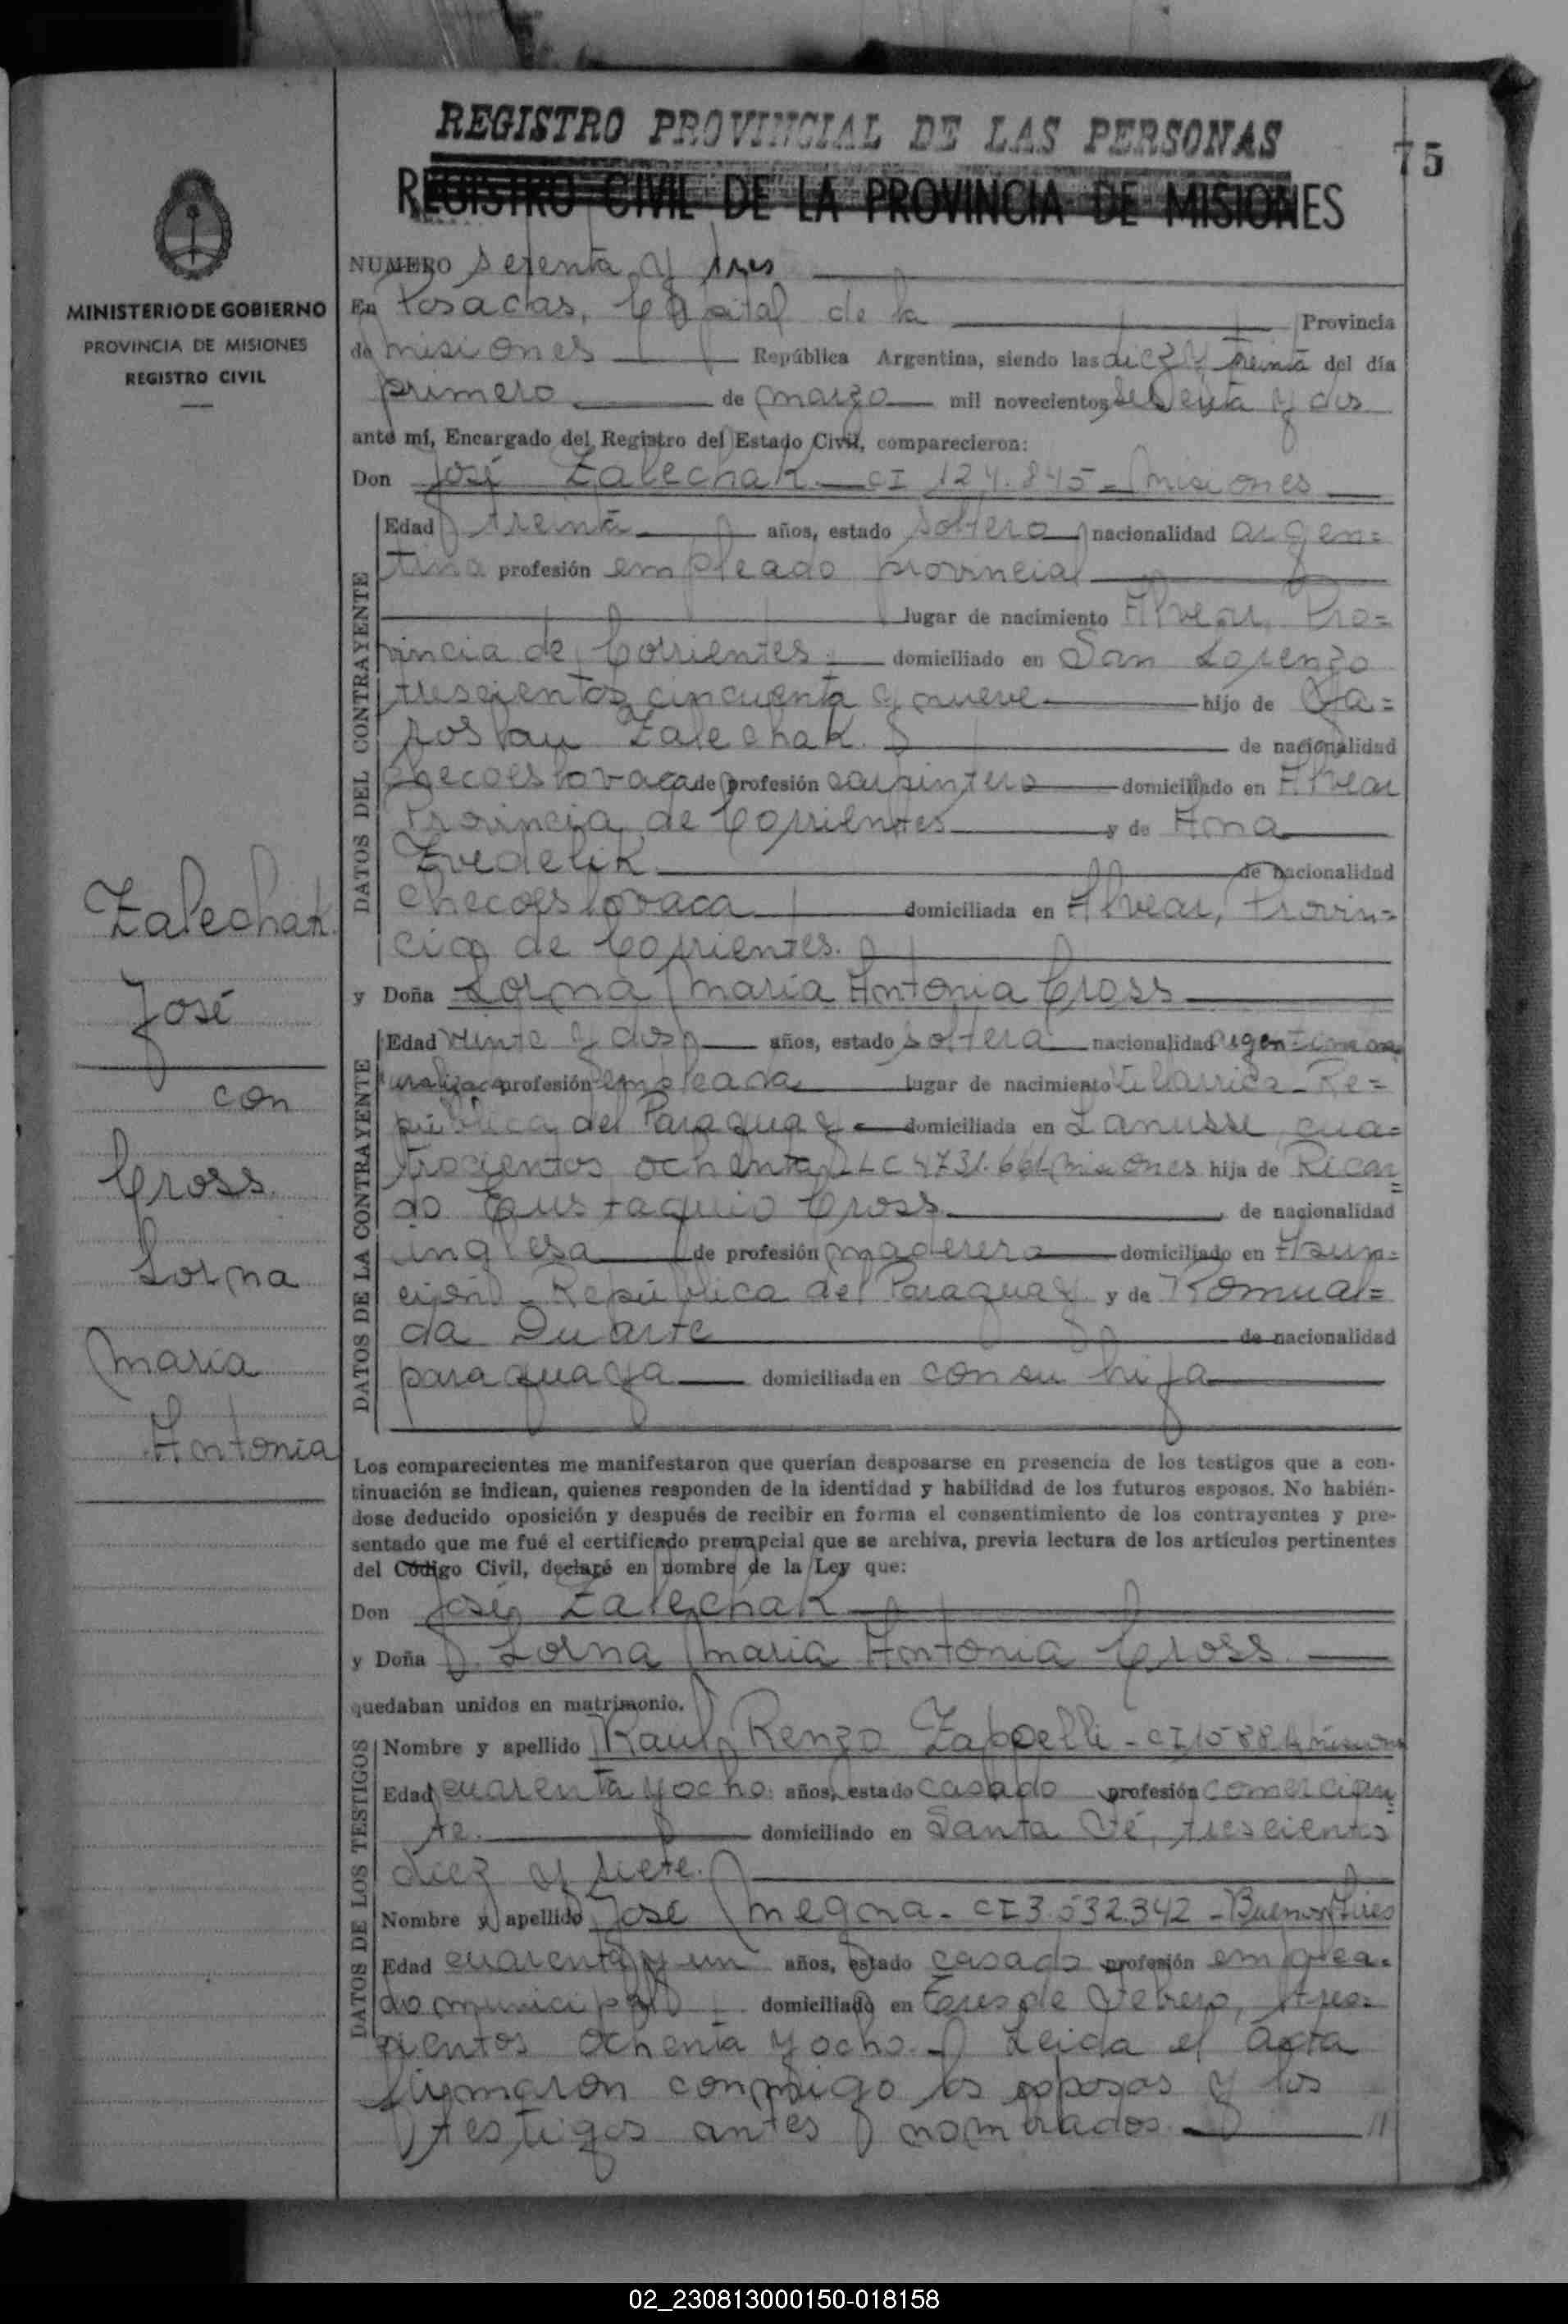 REGISTRO PROVINCIAL DE LAS PERSONAS
75
REGISTRO CIVIL DE LA PROVINCIA DE MISIONES
MINISTERIO DE GOBIERNO
PROVINCIA DE MISIONES
REGISTRO CIVIL
Zalechak
José
con
Cross
Lorna
María
Antonia
NUMERO setenta y tres
En Posadas, Capital de la Provincia
de misiones República Argentina, siendo las diez y treinta del día
primero de marzo mil novecientos setenta y dos
ante mí, Encargado del Registro del Estado Civil, comparecieron:
Don José Zalechak CI 124.845 - misiones
DATOS DEL CONTRAYENTE
Edad treinta años, estado soltero nacionalidad argen=
tina profesión empleado provincial
lugar de nacimiento Alvear, Pro=
vincia de Corrientes domiciliado en San Lorenzo
trescientos cincuenta y nueve hijo de Ya=
roslau Zalechak de nacionalidad
checoeslovaca de profesión carpintero domiciliado en Alvear
Provincia de Corrientes y de Ana
Zvedelik de nacionalidad
checoeslovaca domiciliada en Alvear, Provin=
cia de Corrientes.
y Doña Lorna María Antonia Cross
DATOS DE LA CONTRAYENTE
Edad veinte y dos años, estado soltera nacionalidad argentina
profesión empleada lugar de nacimiento Villarrica - Re=
pública del Paraguay domiciliada en Lanusse, cua=
trocientos ochenta LC 4731.661 misiones hija de Ricar
=
do Eustaquio Cross de nacionalidad
inglesa de profesión maderero domiciliado en Asun=
ción - República del Paraguay y de Romual=
da Duarte de nacionalidad
paraguaya domiciliada en con su hija
Los comparecientes me manifestaron que querían desposarse en presencia de los testigos que a con-
tinuación se indican, quienes responden de la identidad y habilidad de los futuros esposos. No habién-
dose deducido oposición y después de recibir en forma el consentimiento de los contrayentes y pre-
sentado que me fué el certificado prenupcial que se archiva, previa lectura de los artículos pertinentes
del Código Civil, declaré en nombre de la Ley que:
Don José Zalechak
y Doña Lorna María Antonia Cross.
quedaban unidos en matrimonio.
DATOS DE LOS TESTIGOS
Nombre y apellido Raul Renzo Zappelli - CI 15884 misiones
Edad cuarenta y ocho años, estado casado profesión comercian
=
te. domiciliado en Santa Fé, trescientos
diez y siete.
Nombre y apellido José Megna - CI 3.532.342 - Buenos Aires
Edad cuarenta y un años, estado casado profesión emplea=
do municipal domiciliado en Tres de Febrero, tres=
cientos ochenta y ocho. Leida el acta
firmaron conmigo los esposos y los
testigos antes nombrados. //
02_230813000150-018158